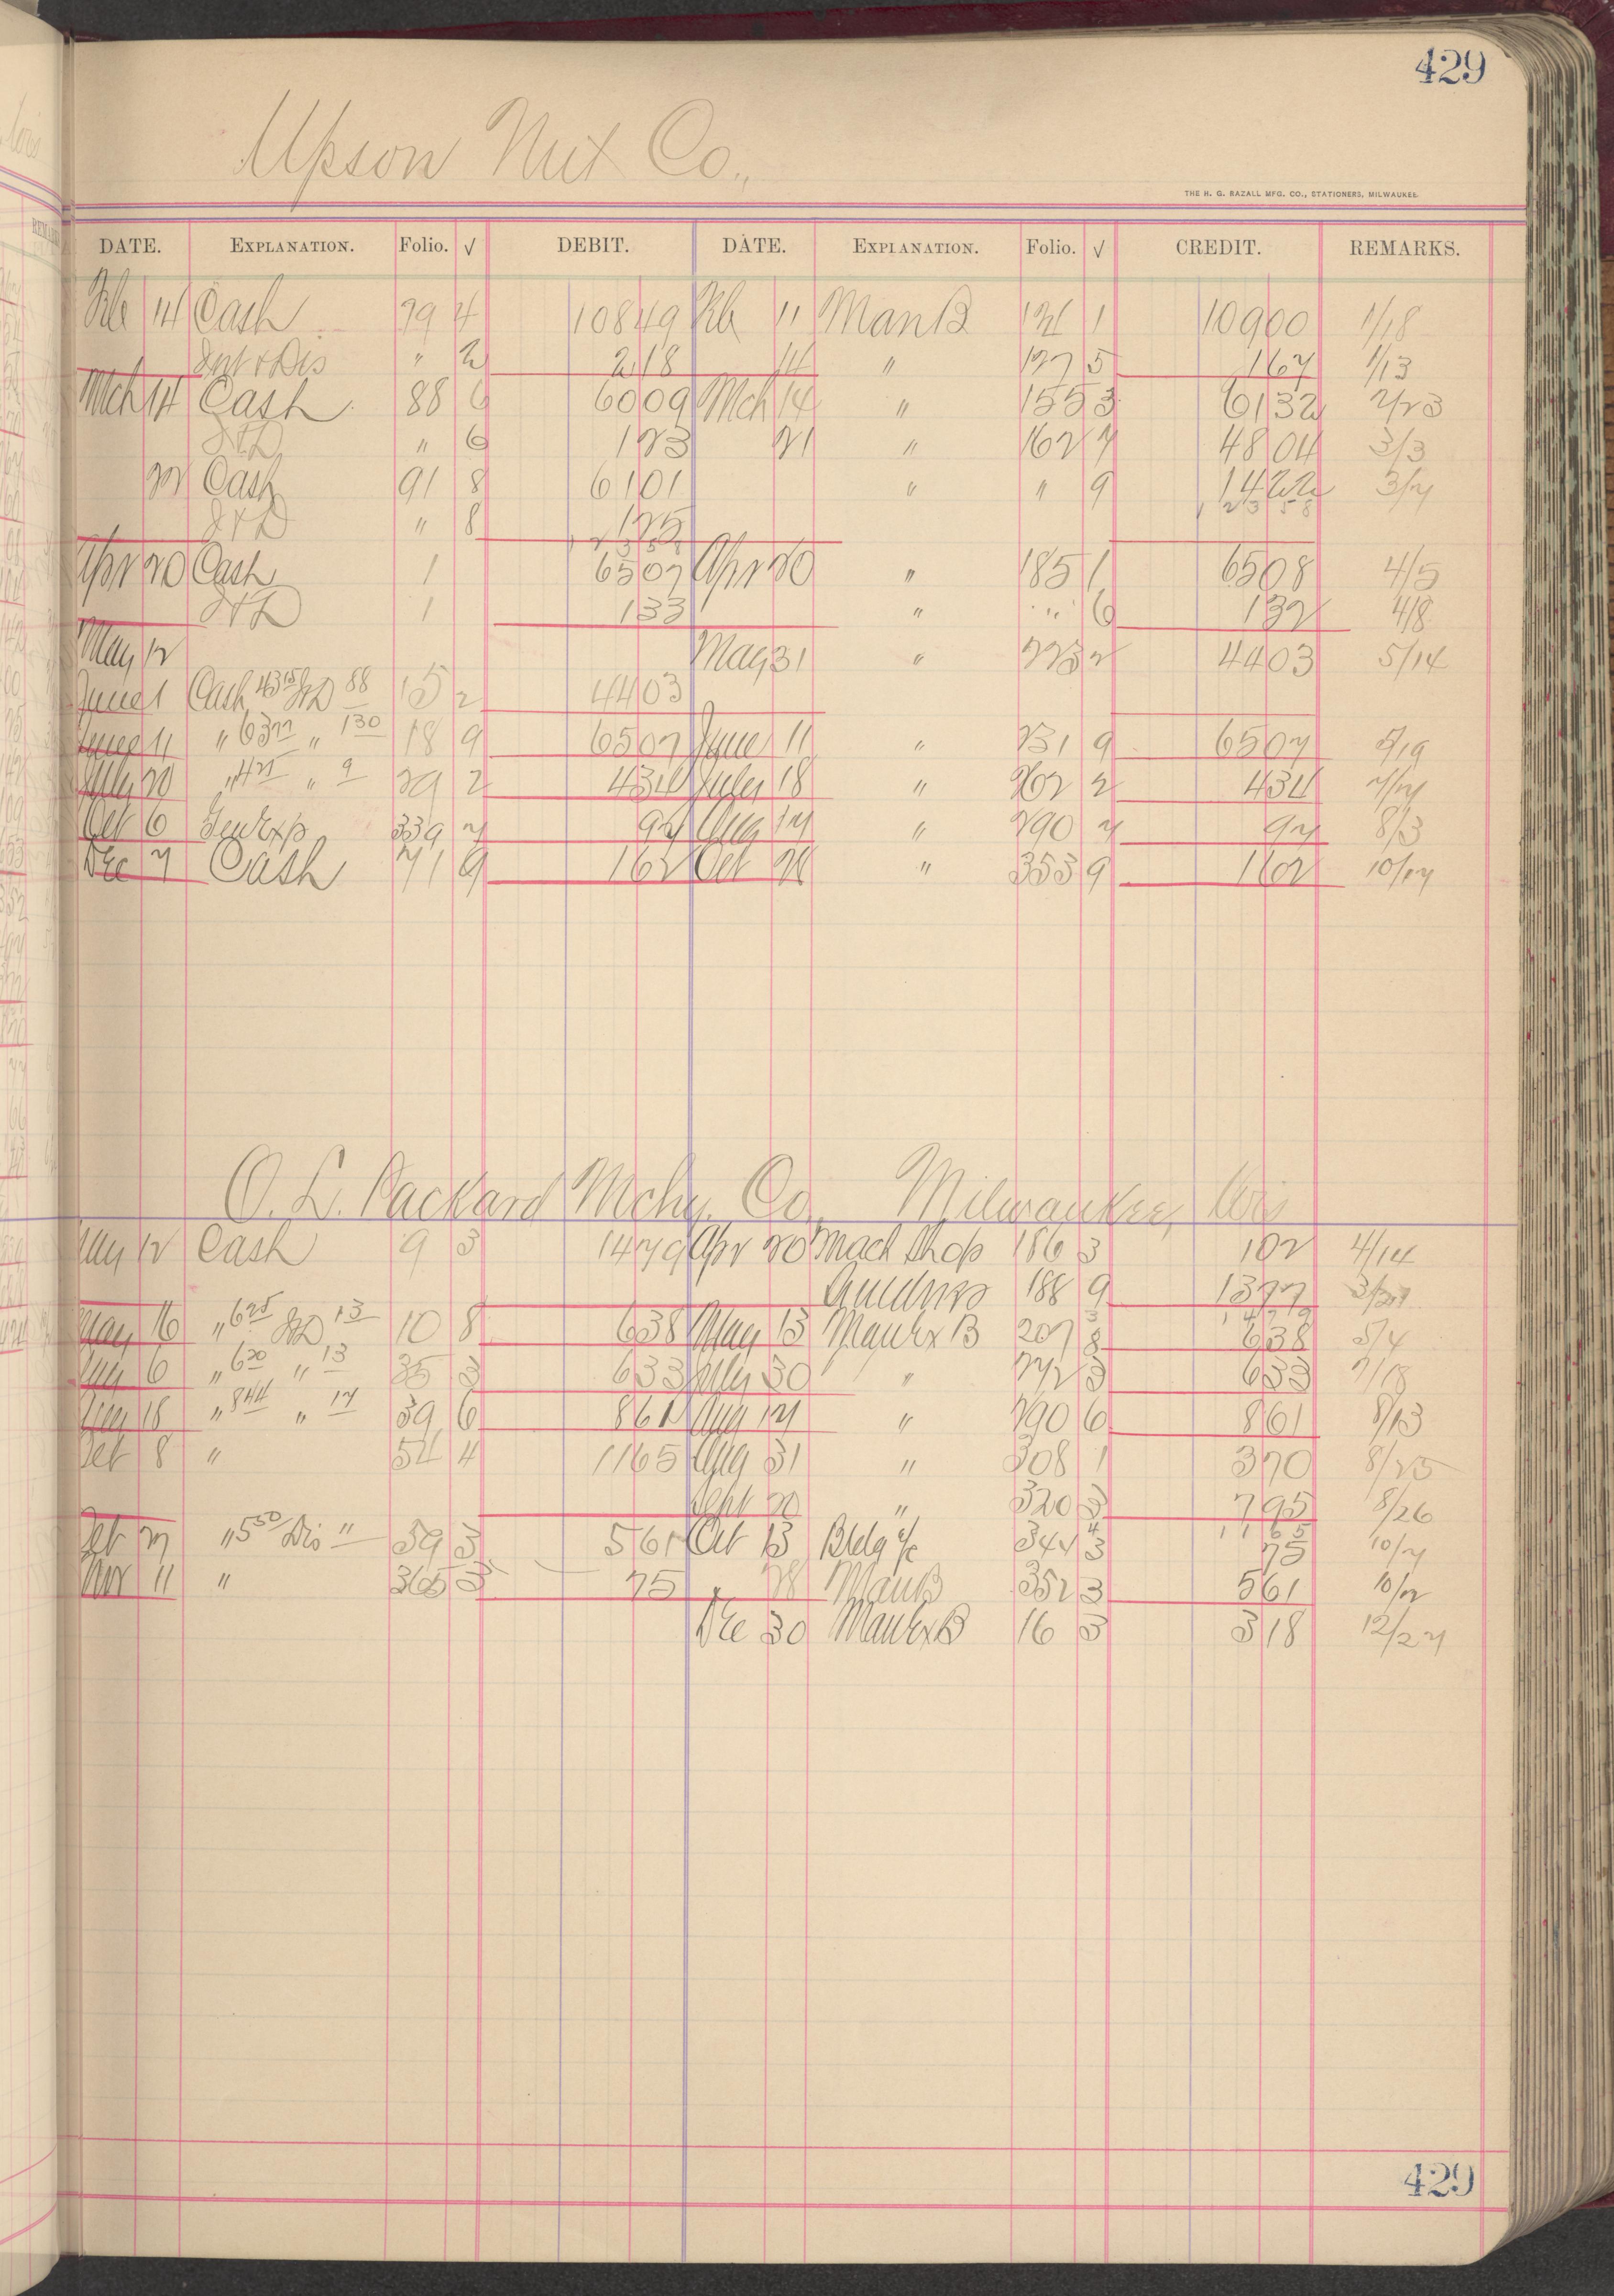 429
Upson Nut Co.,
THE H. G. RAZALL MFG. CO., STATIONERS, MILWAUKEE.
DATE. EXPLANATION. Folio. √ DEBIT. DATE. EXPLANATION. Folio. √ CREDIT. REMARKS.
Feb 14 Cash 79 4 108 49 Feb 11 Man B 1 109 00 1/18
Int & Dis " 2 2 18 14 " 127 5 1 67 1/13
Mch 14 Cash 88 6 60 09 Mch 14 " 155 3 61 32 2/23
I & D " 6 1 23 21 " 162 7 48 04 3/3
22 Cash 91 8 61 01 " " 9 14 22 3/7
1 2 3 5 8
I & D " 8 1 25
1 2 3 5 8
Apr 20 Cash 1 65 07 Apr 20 " 185 1 65 08 4/5
I & D 1 1 33 " " 6 1 32 4/8
May 12 May 31 " 223 2 44 03 5/14
June 1 Cash 43 15 I&D 88 15 2 44 03
June 11 " 63 77 " 1 30 18 9 65 07 June 11 " 231 9 65 07 5/19
July 20 " 4 25 " 9 29 2 4 34 July 18 " 262 2 4 34 7/7
Oct 6 Gen Exp 339 7 97 Aug 17 " 290 7 97 8/3
Dec 7 Cash 71 9 1 62 Oct " 353 9 1 62 10/17
O. L. Packard Mchy. Co., Milwaukee, Wis
May 12 Cash 9 3 14 79 Apr 20 Mach Shop 186 3 1 02 4/14
188 9 13 77
1 4 7 9
May 16 " 6 25 I&D 13 10 8 6 38 May 13 Man Ex B 207 8 6 38 5/4
Aug 6 " 6 20 " 13 35 3 6 33 July 30 " 272 3 6 33 7/18
Aug 18 " 8 44 " 17 39 6 8 61 Aug 17 " 290 6 8 61 8/13
Oct 8 " 54 4 11 65 Aug 31 " 308 1 3 70 8/25
Sept 20 " 320 3 7 95 8/26
1 1 6 5
Oct 27 " 5 50 Dis " 59 3 5 61 Oct 13 Bldg a/c 344 3 75 10/7
Nov 11 " 365 3 75 28 Man B 352 3 5 61 10/12
Dec 30 Man Ex B 16 3 3 18 12/27
429